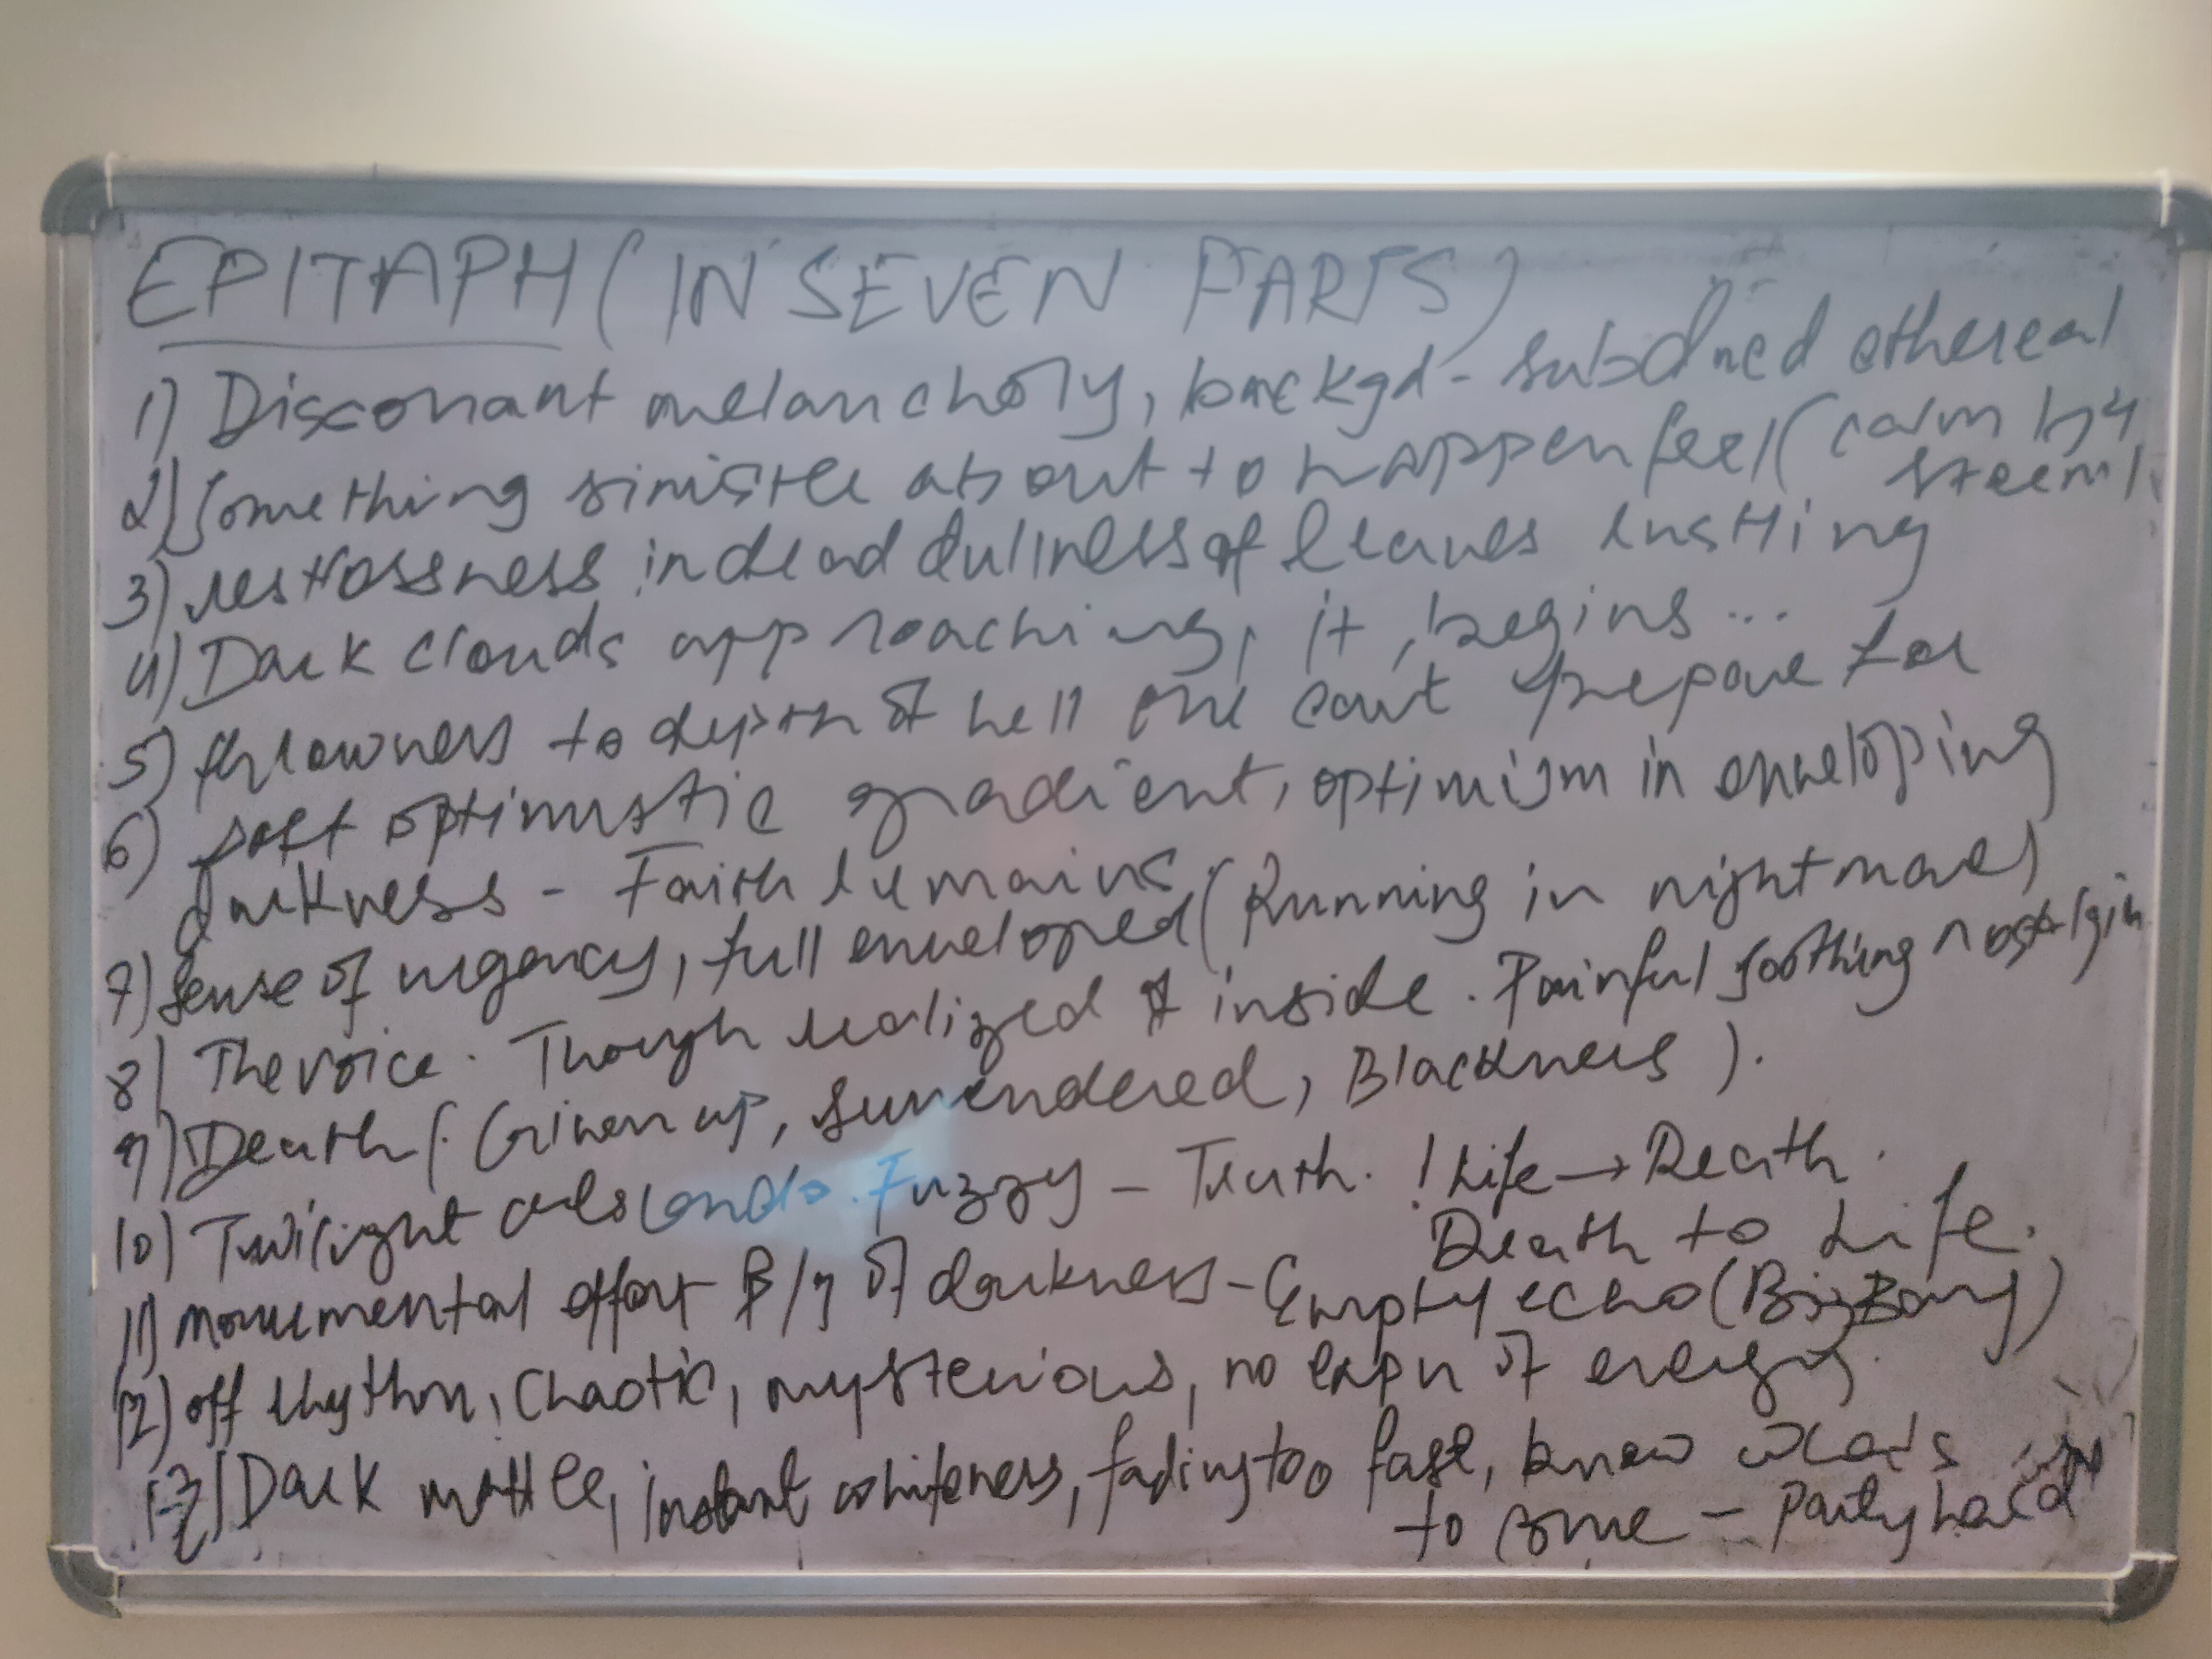 EPITAPH (IN SEVEN PARTS)
1) Dissonant melancholy, backgd - subdued ethereal
2) Something sinister about to happen feel (calm b4
storm)
3) restlessness in dead dullness of leaves rustling
4) Dark clouds approaching, it begins...
5) thrownness to depth of hell one cant prepare for
6) soft optimistic gradient, optimism in enveloping
darkness - Faith remains
7) Sense of urgency, full enveloped (Running in nightmare)
8) The voice. Though realized inside. Painful soothing nostalgia
9) Death (Given up, surrendered, Blackness).
10) Twilight descends. Fuzzy - Truth. ! Life → Death.
Death to Life.
11) monumental effort B/g of darkness - Empty echo (Big Bang)
12) off rhythm, Chaotic, mysterious, no expn of energy.
13) Dark matter, instant whiteness, fading too fast, knew
to come - Party hard